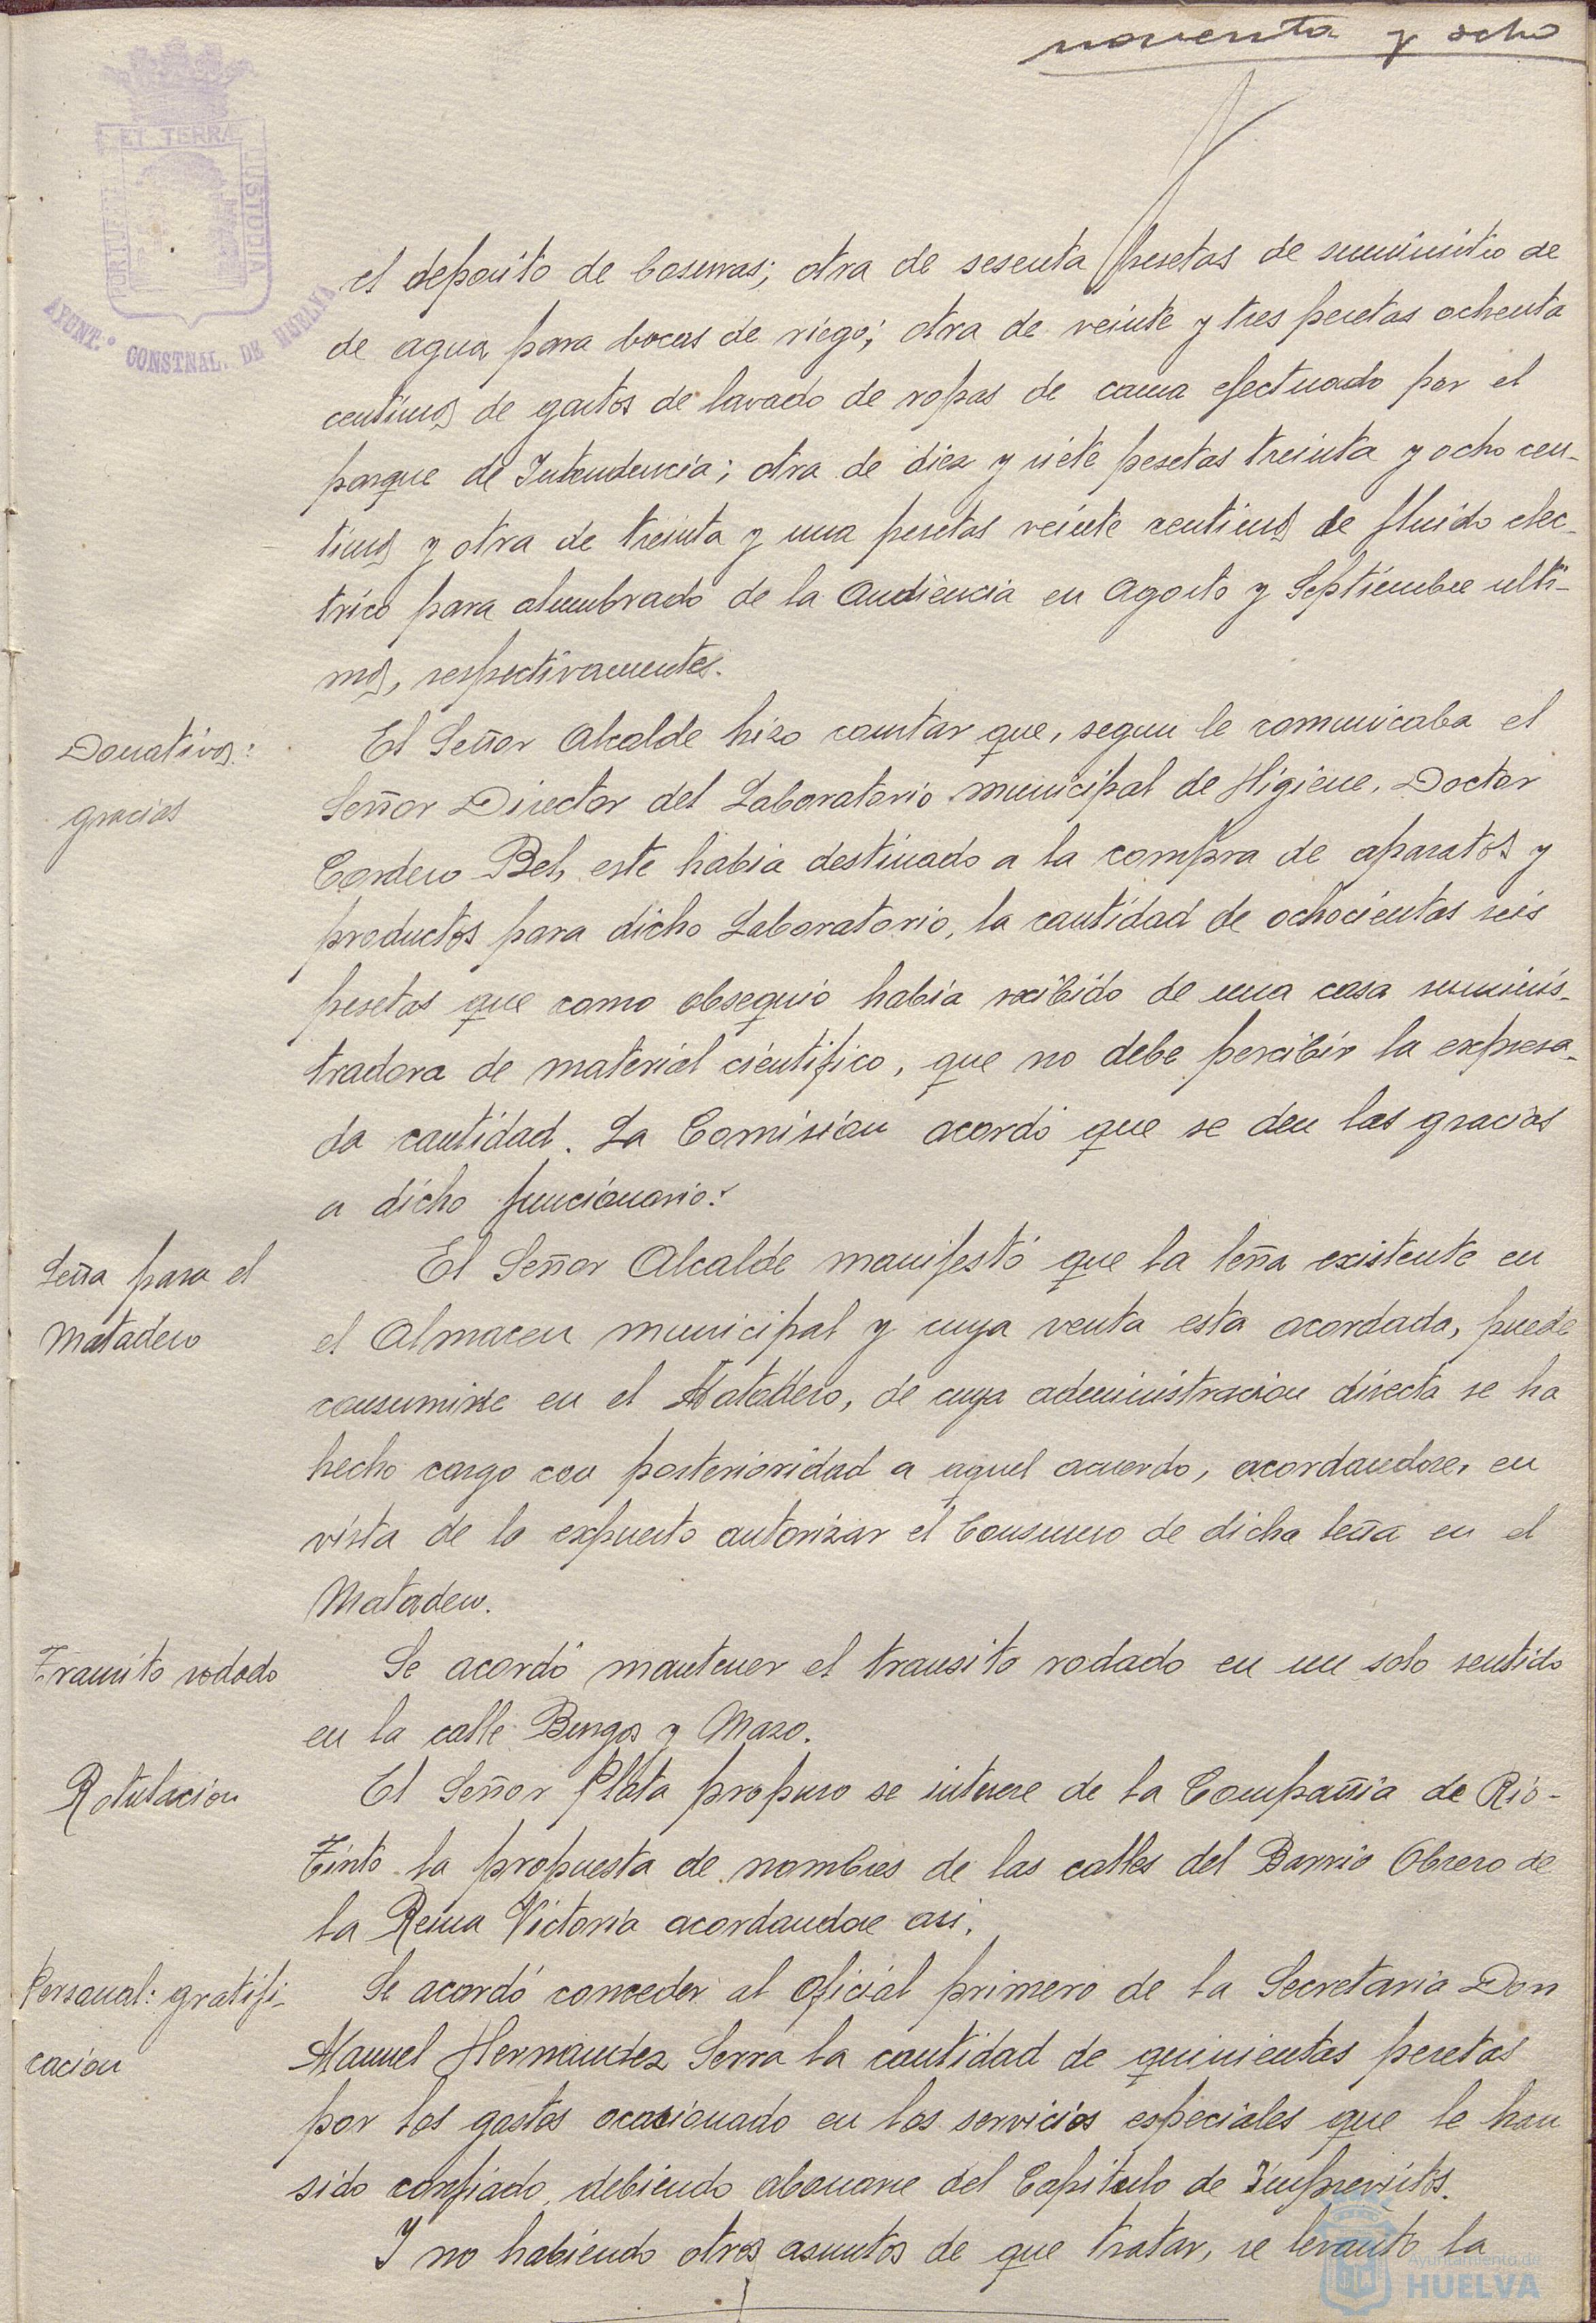 noventa y ocho
ET TERRÆ
CUSTODIA
AYUNT.º CONSTNAL. DE HUELVA
el deposito de basuras; otra de sesenta pesetas de suministro de
de agua para bocas de riego; otra de veinte y tres pesetas ochenta
centimos de gastos de lavado de ropas de cama efectuado por el
parque de Intendencia; otra de diez y siete pesetas treinta y ocho cen-
timos y otra de treinta y una pesetas veinte centimos de fluido elec-
trico para alumbrado de la Audiencia en Agosto y Septiembre ulti-
mos, respectivamentes.
Donativos:
gracias
El Señor Alcalde hizo constar que, segun le comunicaba el
Señor Director del Laboratorio municipal de Higiene, Doctor
Cordero Bel, este habia destinado a la compra de aparatos y
productos para dicho Laboratorio, la cantidad de ochocientas seis
pesetas que como obsequio habia recibido de una casa suminis-
tradora de material cientifico, que no debe percibir la expresa-
da cantidad. La Comisión acordó que se den las gracias
a dicho funcionario.
Leña para el
Matadero
El Señor Alcalde manifestó que la leña existente en
el Almacen municipal y cuya venta esta acordada, puede
consumirse en el Matadero, de cuya administracion directa se ha
hecho cargo con posterioridad a aquel acuerdo, acordandose, en
vista de lo expuesto autorizar el Consumo de dicha leña en el
Matadero.
Transito rodado
Se acordó mantener el transito rodado en un solo sentido
en la calle Burgos y Mazo.
Rotulacion
El Señor Plata propuso se interese de la Compañia de Rio-
Tinto la propuesta de nombres de las calles del Barrio Obrero de
la Reina Victoria acordandose asi.
Personal: gratifi-
cacion
Se acordó conceder al Oficial primero de la Secretaria Don
Manuel Hernandez Serra la cantidad de quinientas pesetas
por los gastos ocasionado en los servicios especiales que le han
sido confiado, debiendo abonarse del Capitulo de Imprevistos.
Y no habiendo otros asuntos de que tratar, se levantó la
Ayuntamiento de
HUELVA